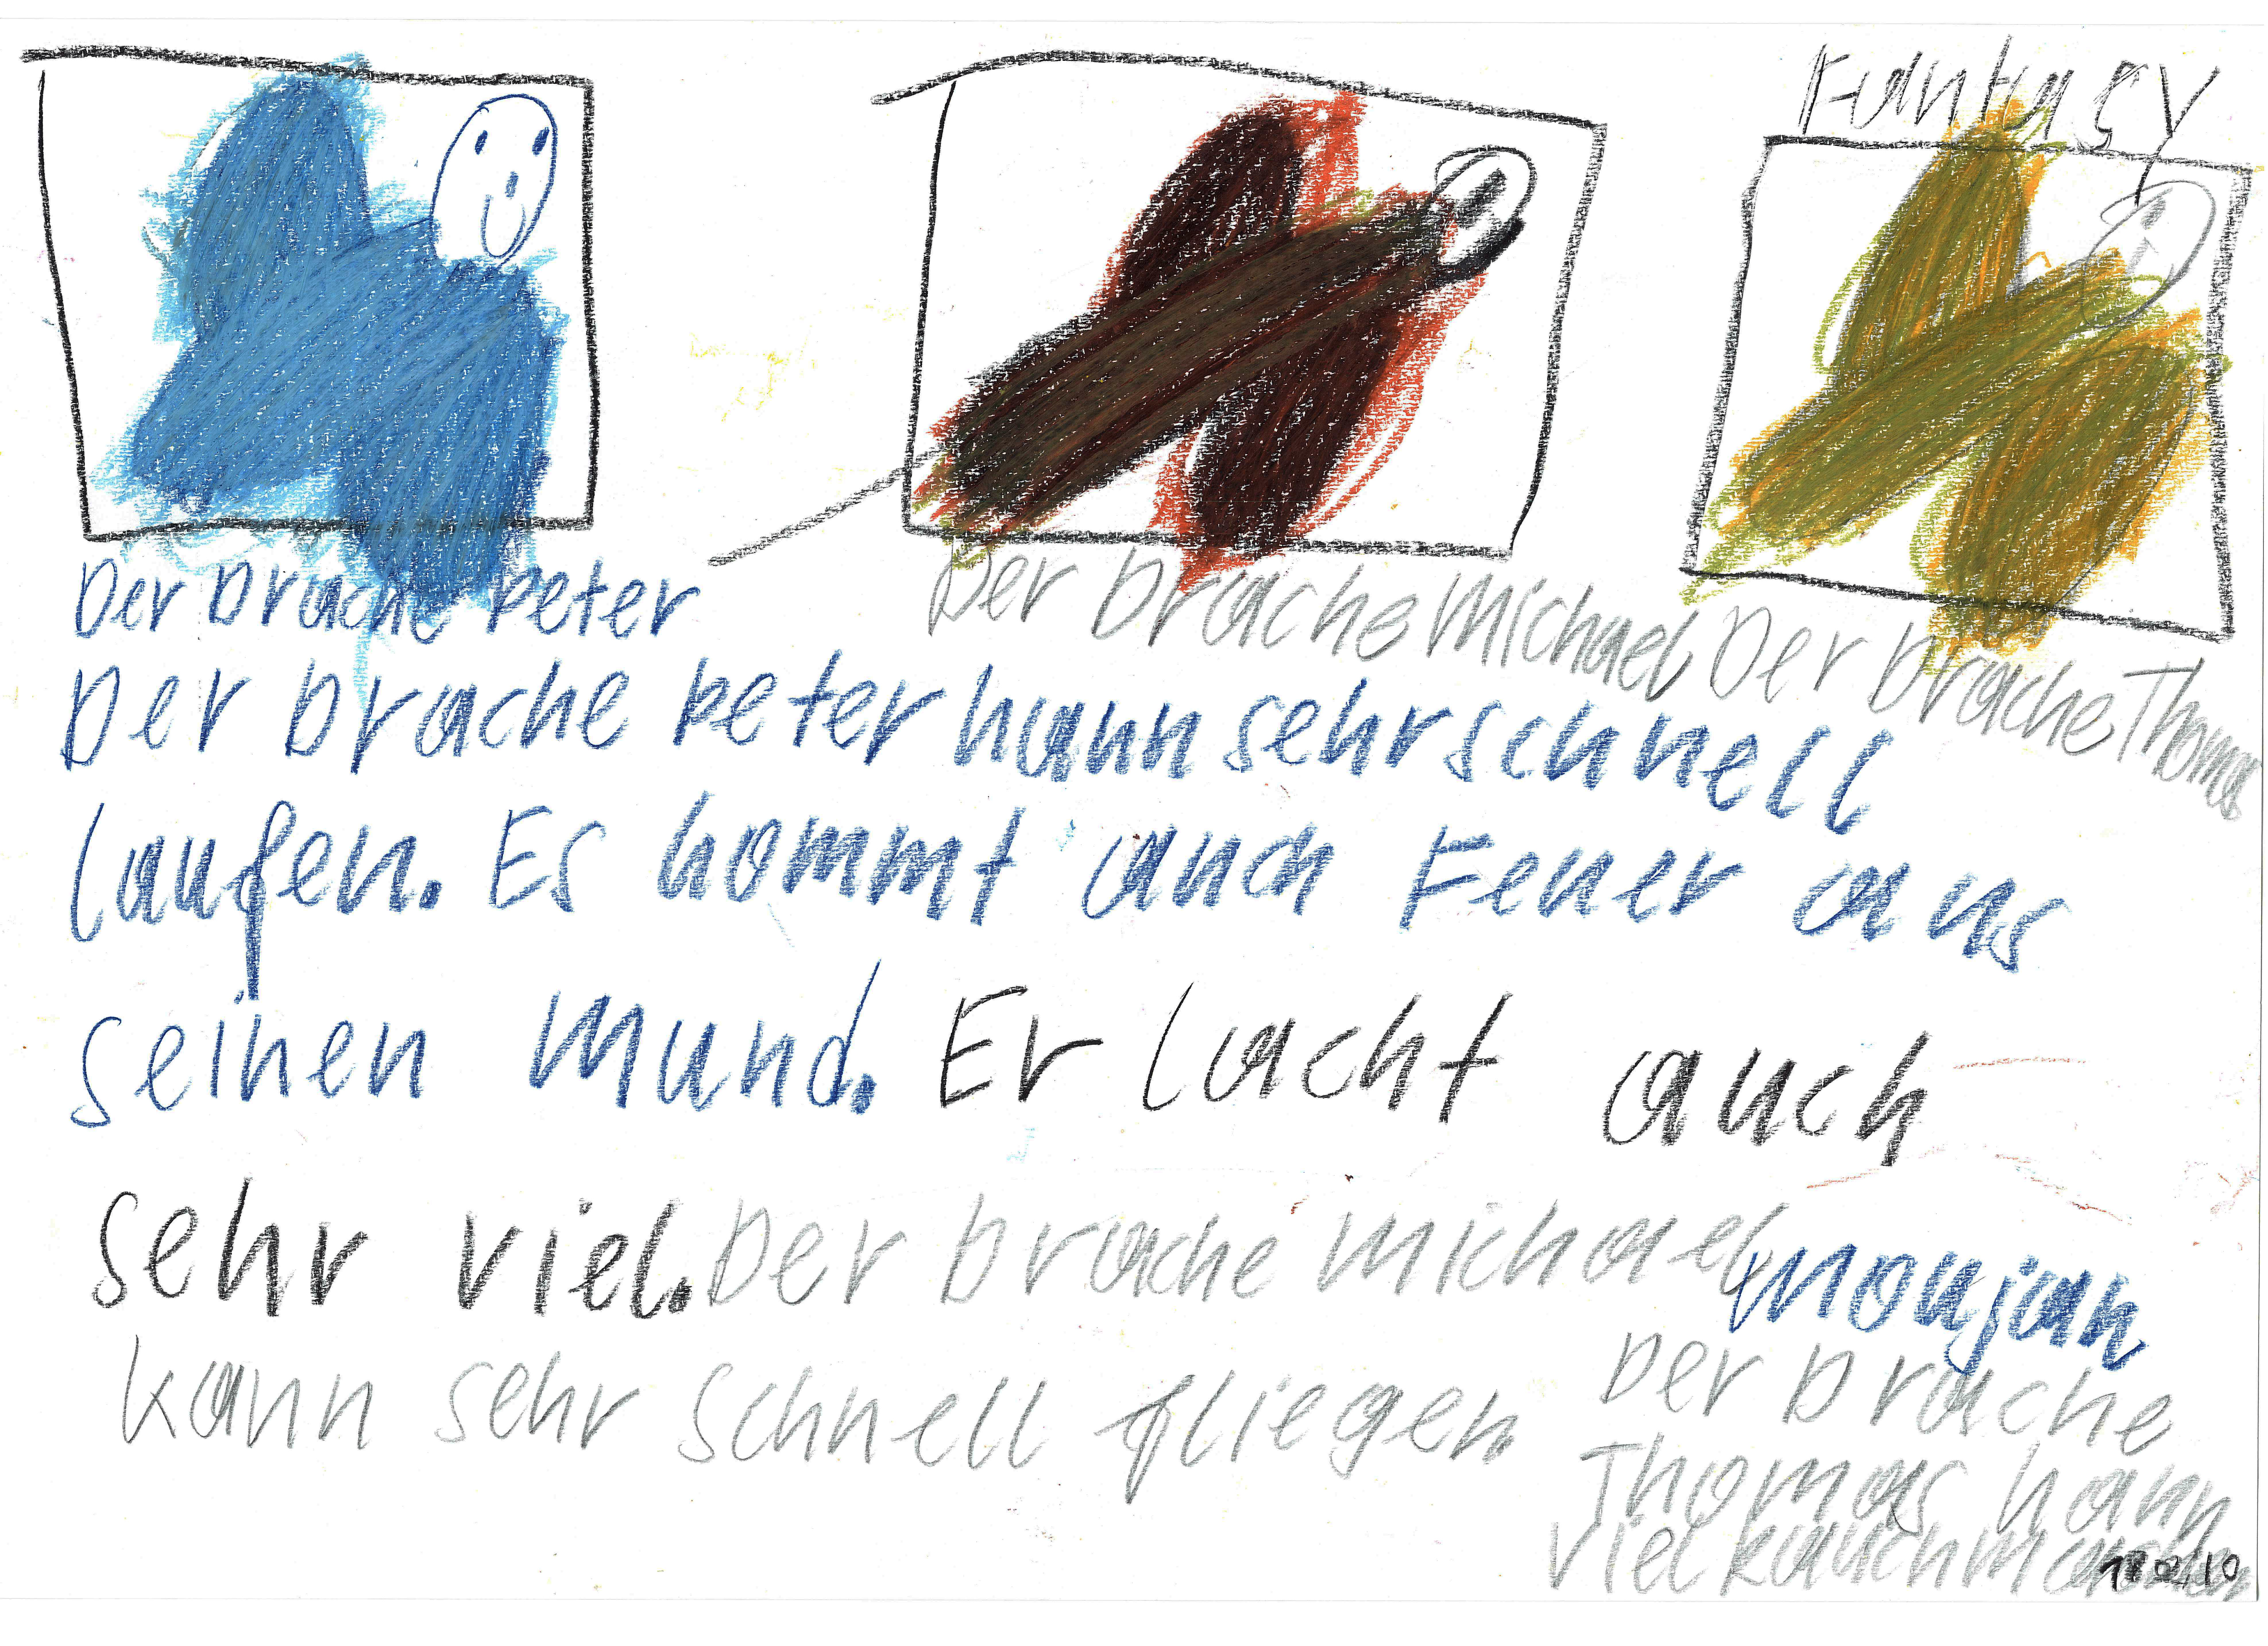 Fantasy
Der Drache Peter
Der Drache Michael
Der Drache Thomas
Der Drache Peter kann sehr schnell
laufen. Es kommt auch Feuer aus
seinen Mund. Er lacht auch
sehr viel. Der Drache Michael
kann sehr schnell fliegen.
Der Drache
Thomas kann
viel Rauch machen